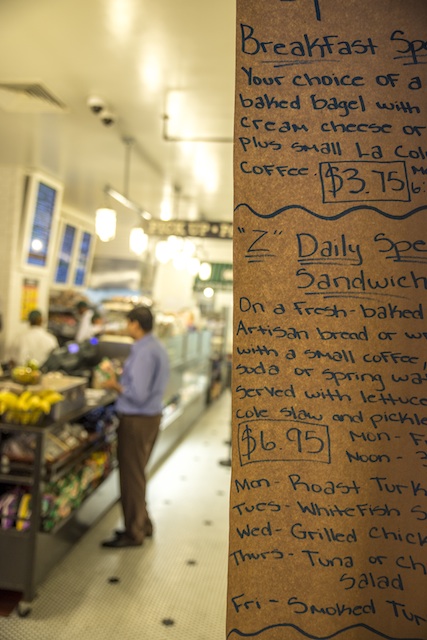 Breakfast Spe
Your choice of a
baked bagel with
cream cheese or
Plus small La Col
Coffee. $3.75 M
6:
"Z" Daily Spe
Sandwich
On a Fresh-baked
Artisan bread or w
with a small coffee,
soda or spring wa
served with lettuce
cole slaw and pickle
$6.95 Mon - F
Noon - 3
Mon - Roast Turk
Tues - Whitefish S
Wed - Grilled Chick
Thurs - Tuna or Ch
Salad
Fri - Smoked Tur
PICK UP